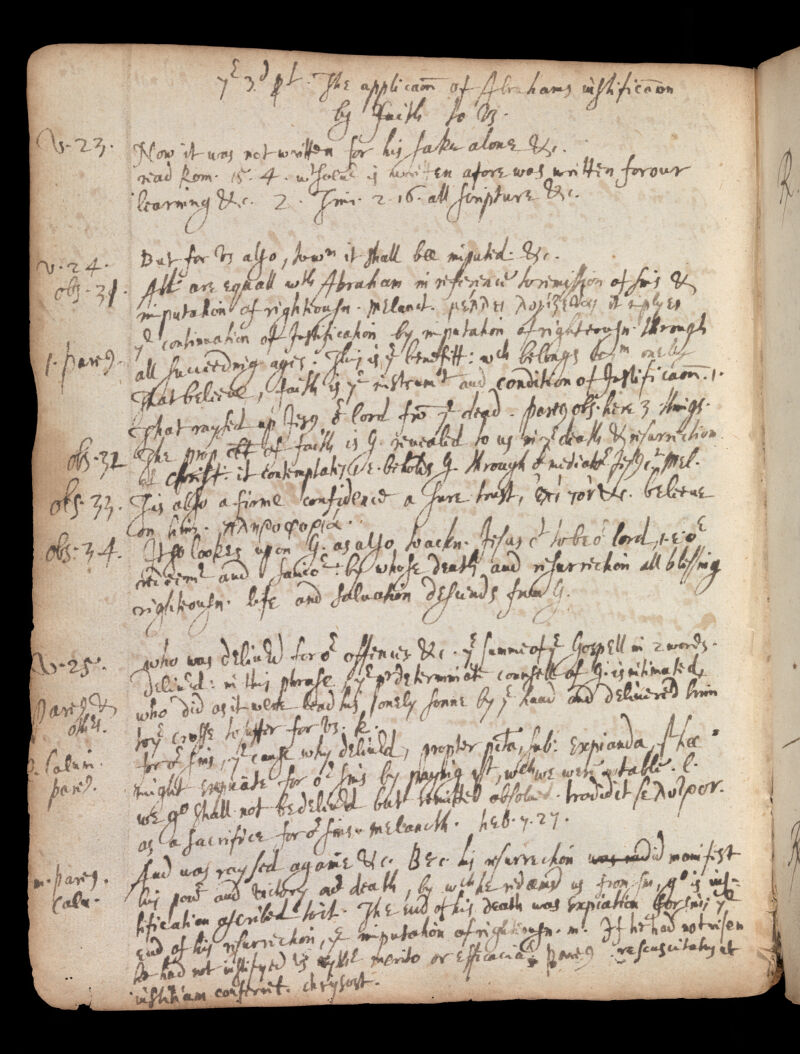 yͤ 3ᵈ pt. The applicaon of Abrahams iustificaon
by Faith to us.
V. 23. Now it was not written for his sake alone &c.
read Rom. 15. 4. wtsoeue is written afore was written for our
learning &c. 2. Tim. 2. 16. all scripture &c.
V. 24. But for us also, to wm it shall bee imputed: &c.
obs. 31. All are equall wth Abraham in reference to remission of sins &
imputation of rightiousn. Melanct. μελλει λογιζεσθαι it implyes
yͤ continuation of Iustification by imputation of righteousn. through
1. Pareꝯ. all succeeding ages. This is yͤ benefitt: wch belongs to ym onely
that believe, faith is yͤ instrumt and condition of Iustificaon. 1.
That raysed up Jesꝯ oͬ lord fro yͤ dead. Pareꝯ obs. here 3 things.
obs. 32 The prop obt of faith is G. revealed to us in yͤ death & resurrection
of christ. it contemplates i.e. beholds G. through yͤ mediatoͬ Mel.
obs. 33. Tis also a firme confidence a sure trust, επι τον &c. believe
on him. πληροφορια.
obs. 34. It lookes upon G. as also to ackn. Jesus ct to be oͬ lord, i.e. oͬ
redeemͬ and savioͬ: by whose death and resurrection all blessing
rightiousn. life and salvation descends from G.
V. 25. who was deliued for oͬ offences &c. yͤ summe of yͤ Gospell in 2 words.
Deliued: in this phrase yͤ predeterminate counsell of G. is intimated,
Pareꝯ & who did as it were lead his onely sonne by yͤ hand and delivered him
othrs. to yͤ crosse to suffer for us. k.
for oͬ sins, yͤ cause why deliued, propter pcta, sub: expianda, yt hee
k. Calvin. might expiate for oͬ sins by paying yt, wch we were not able. l.
pareꝯ. we go shall not be deliued but remitted absolvd. tradidit se λυτρον.
as a sacrifice for oͬ sins. Melancth. heb. 7. 27.
And was raysed againe &c. Bec his resurrection did manifest
m. pareꝯ. his power and victory oͬ death, by wch he redeemed us from sin, go is ius-
Calv. tification ascribed to it. The end of his death was expiation for sins, yͤ
end of his resurrection, yͤ imputation of righteousn. m. If he had not risen
he had not iustifyed us merito or efficacia Pareꝯ resuscitatus ut
iustitiam conferrit. chrysost.